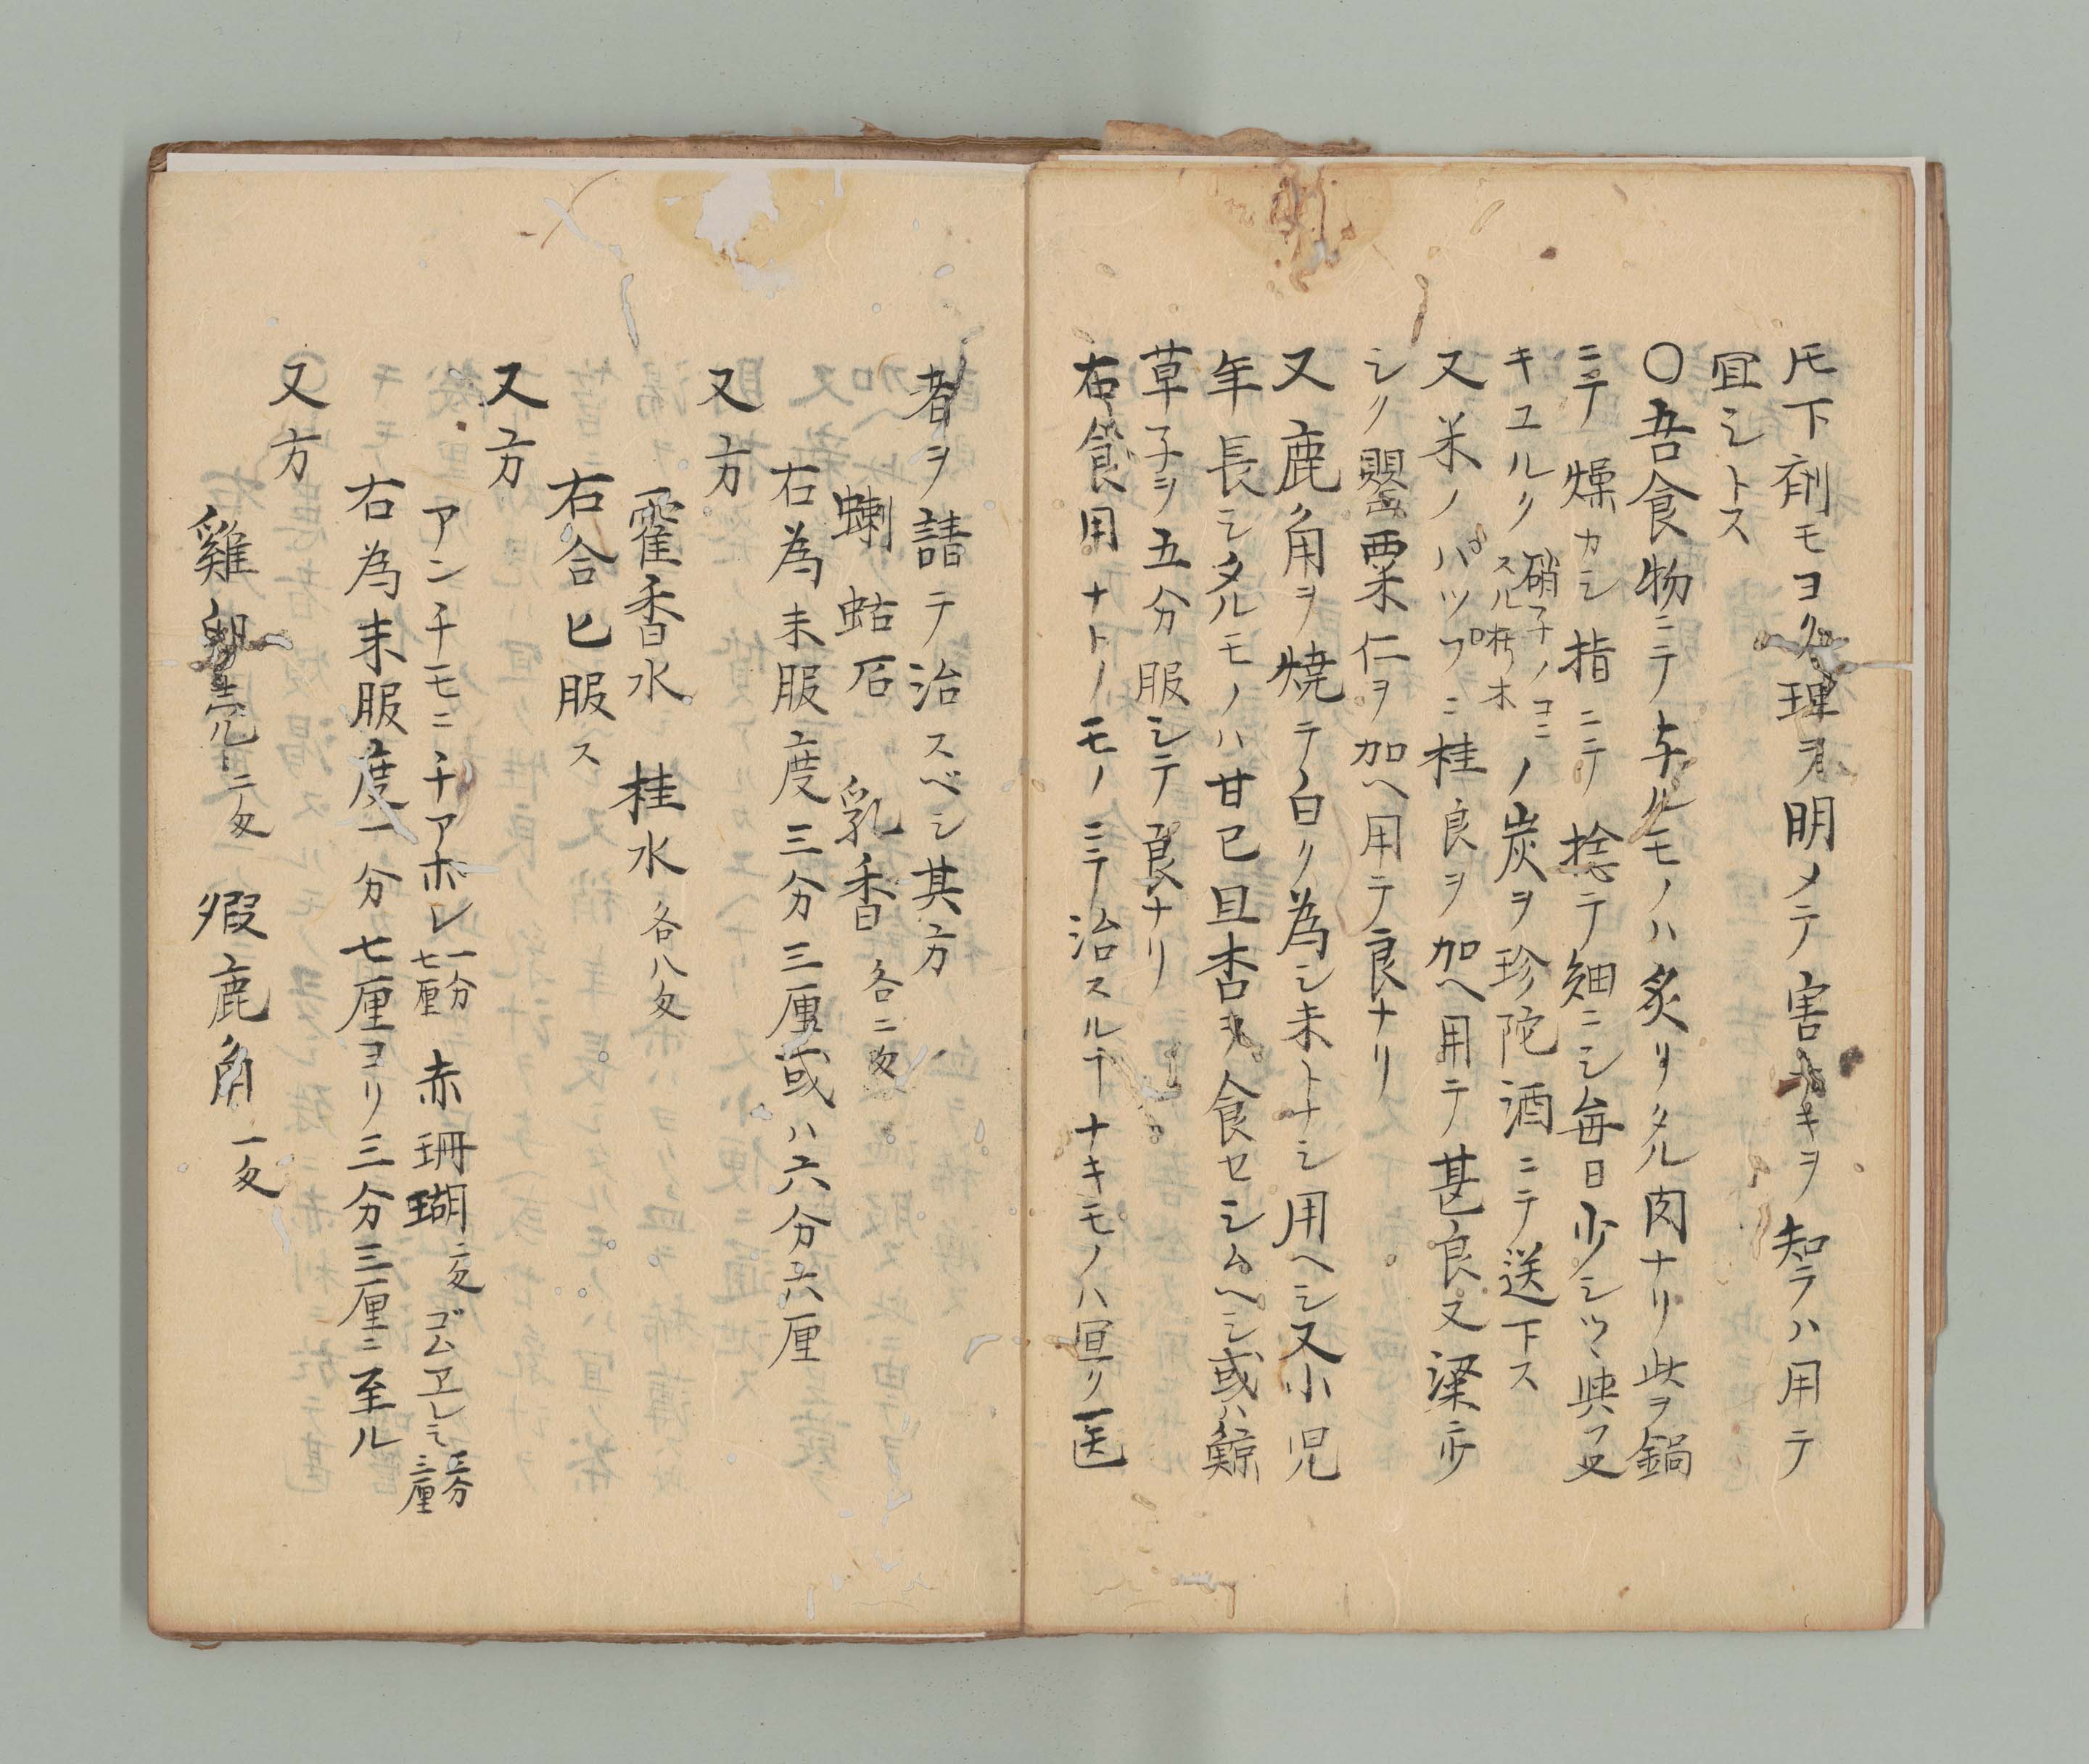 𪜈下剤モヨク理ヲ明メテ害ナキヲ知ラハ用テ
宜シトス
〇吾食物ニテ与ルモノハ炙リタル肉ナリ此ヲ鍋
ニテ燥カシ指ニテ捻テ細ニシ毎日少シツヽ與フ又
キユルク硝子ノコニスル朽木ノ炭ヲ珍陀酒ニテ送下ス
又米ノパツプニ桂良ヲ加ヘ用テ甚良又梁ニ少
シク罌粟仁ヲ加ヘ用テ良ナリ
又鹿角ヲ焼テ白ク為シ末トナシ用ヘシ又小児
年長シタルモノハ甘巴旦杏ヲ食セシムヘシ或ハ鯨
草子ヲ五分服シテ良ナリ
右食用ナトノモノニテ治スルヿナキモノハ宜ク医
者ヲ請テ治スベシ其方
蝲蛄石 乳香 各二匁
右為末服度三分三厘或ハ六分六厘
又方
霍香水 桂水 各八匁
右合匕服ス
又方
アンチモニチアホレ一分七厘 赤珊瑚二匁 ゴムヱレミ三分三厘
右為末服度一分七厘ヨリ三分三厘ニ至ル
又方
雞卵売二匁 煆鹿角一匁